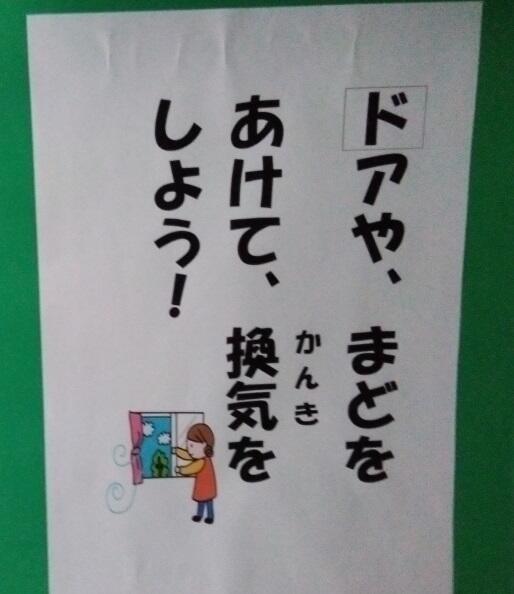 ドアや、まどを
あけて、換気を
かんき
しよう！